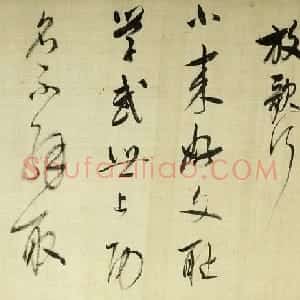 放歌行
小来好文耻
学武世上功
名不解取
Shufaziliao.com